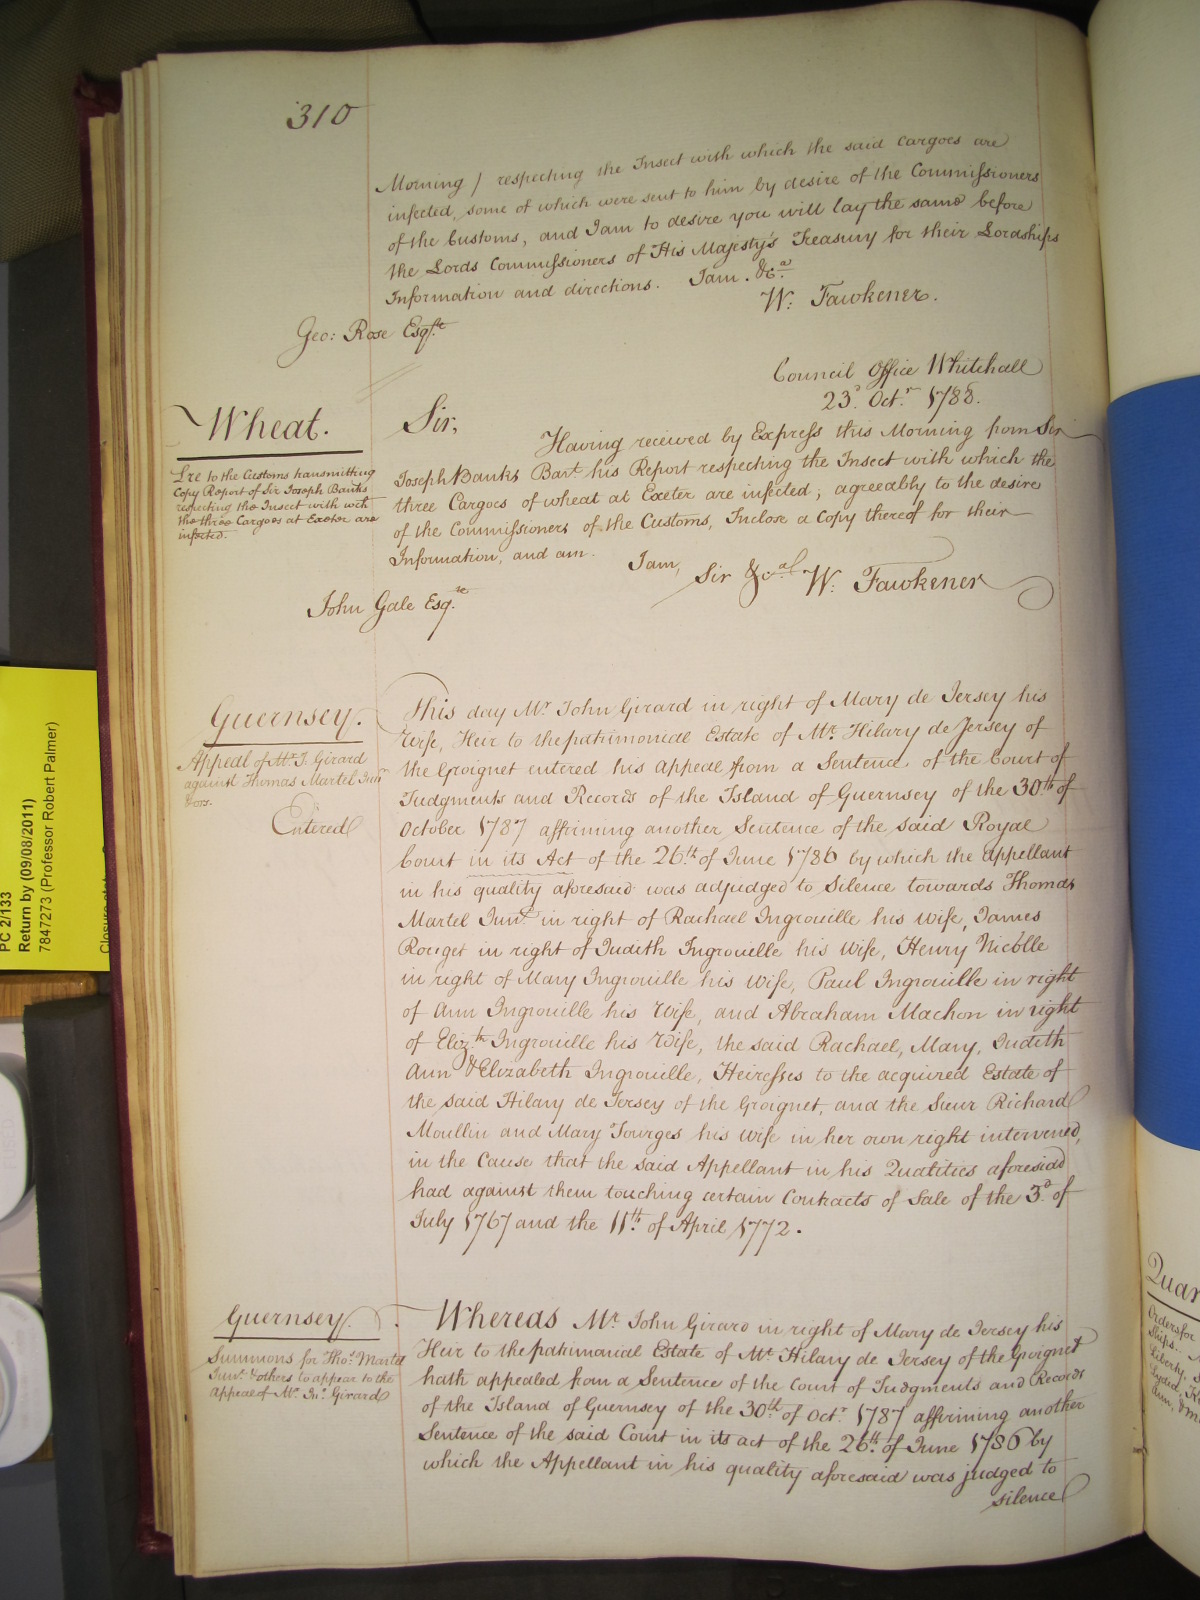 310
Morning) respecting the Insect with which the said Cargoes are
infected, some of which were sent to him by desire of the Commissioners
of the Customs, and I am to desire you will lay the same before
the Lords Commissioners of His Majesty's Treasury for their Lordships
Information and directions. I am. &c.a
W: Fawkener.
Geo: Rose Esqr.e
Council Office Whitehall
23.d Oct.r 1788.
Wheat.
Lre to the Customs transmitting
Copy Report of Sir Joseph Banks
respecting the Insect with wch
the three Cargoes at Exeter are
infected.
Sir,
Having received by Express this Morning from Sir
Joseph Banks Bart. his Report respecting the Insect with which the
three Cargoes of wheat at Exeter are infected; agreeably to the desire
of the Commissioners of the Customs, Inclose a Copy thereof for their
Information, and am.
I am,
Sir &c.a W. Fawkener
John Gale Esq.re
Guernsey.
Appeal of Mr. J. Girard
against Thomas Martel Junr
& ors.
Entered
This day Mr. John Girard in right of Mary de Jersey his
Wife, Heir to the patrimonial Estate of Mr. Hilary de Jersey of
the Groignet entered his appeal from a Sentence of the Court of
Judgments and Records of the Island of Guernsey of the 30th of
October 1787 affirming another Sentence of the said Royal
Court in its Act of the 26th of June 1786 by which the appellant
in his quality aforesaid was adjudged to Silence towards Thomas
Martel Junr. in right of Rachael Ingrouille his Wife, James
Rouget in right of Judith Ingrouille his Wife, Henry Nicolle
in right of Mary Ingrouille his Wife, Paul Ingrouille in right
of Ann Ingrouille his Wife, and Abraham Machon in right
of Eliz.th Ingrouille his Wife, the said Rachael, Mary, Judith
Ann & Elizabeth Ingrouille, Heiresses to the acquired Estate of
the said Hilary de Jersey of the Groignet, and the Sieur Richard
Moullin and Mary Tourges his Wife in her own right intervened,
in the Cause that the said Appellant in his Qualities aforesaid
had against them touching certain Contracts of Sale of the 3.d of
July 1767 and the 11th of April 1772.
Guernsey.
Summons for Tho.s Martel
Junr. & others to appear to the
appeal of Mr. Jn.o Girard
Whereas Mr. John Girard in right of Mary de Jersey his
Heir to the patrimonial Estate of Mr. Hilary de Jersey of the Groignet
hath appealed from a Sentence of the Court of Judgments and Records
of the Island of Guernsey of the 30th of Oct.r 1787 affirming another
Sentence of the said Court in its act of the 26th of June 1786 by
which the Appellant in his quality aforesaid was judged to
silence
PC 2/133
Return by (09/08/2011)
7847273 (Professor Robert Palmer)
Orders for
Ships
Liberty